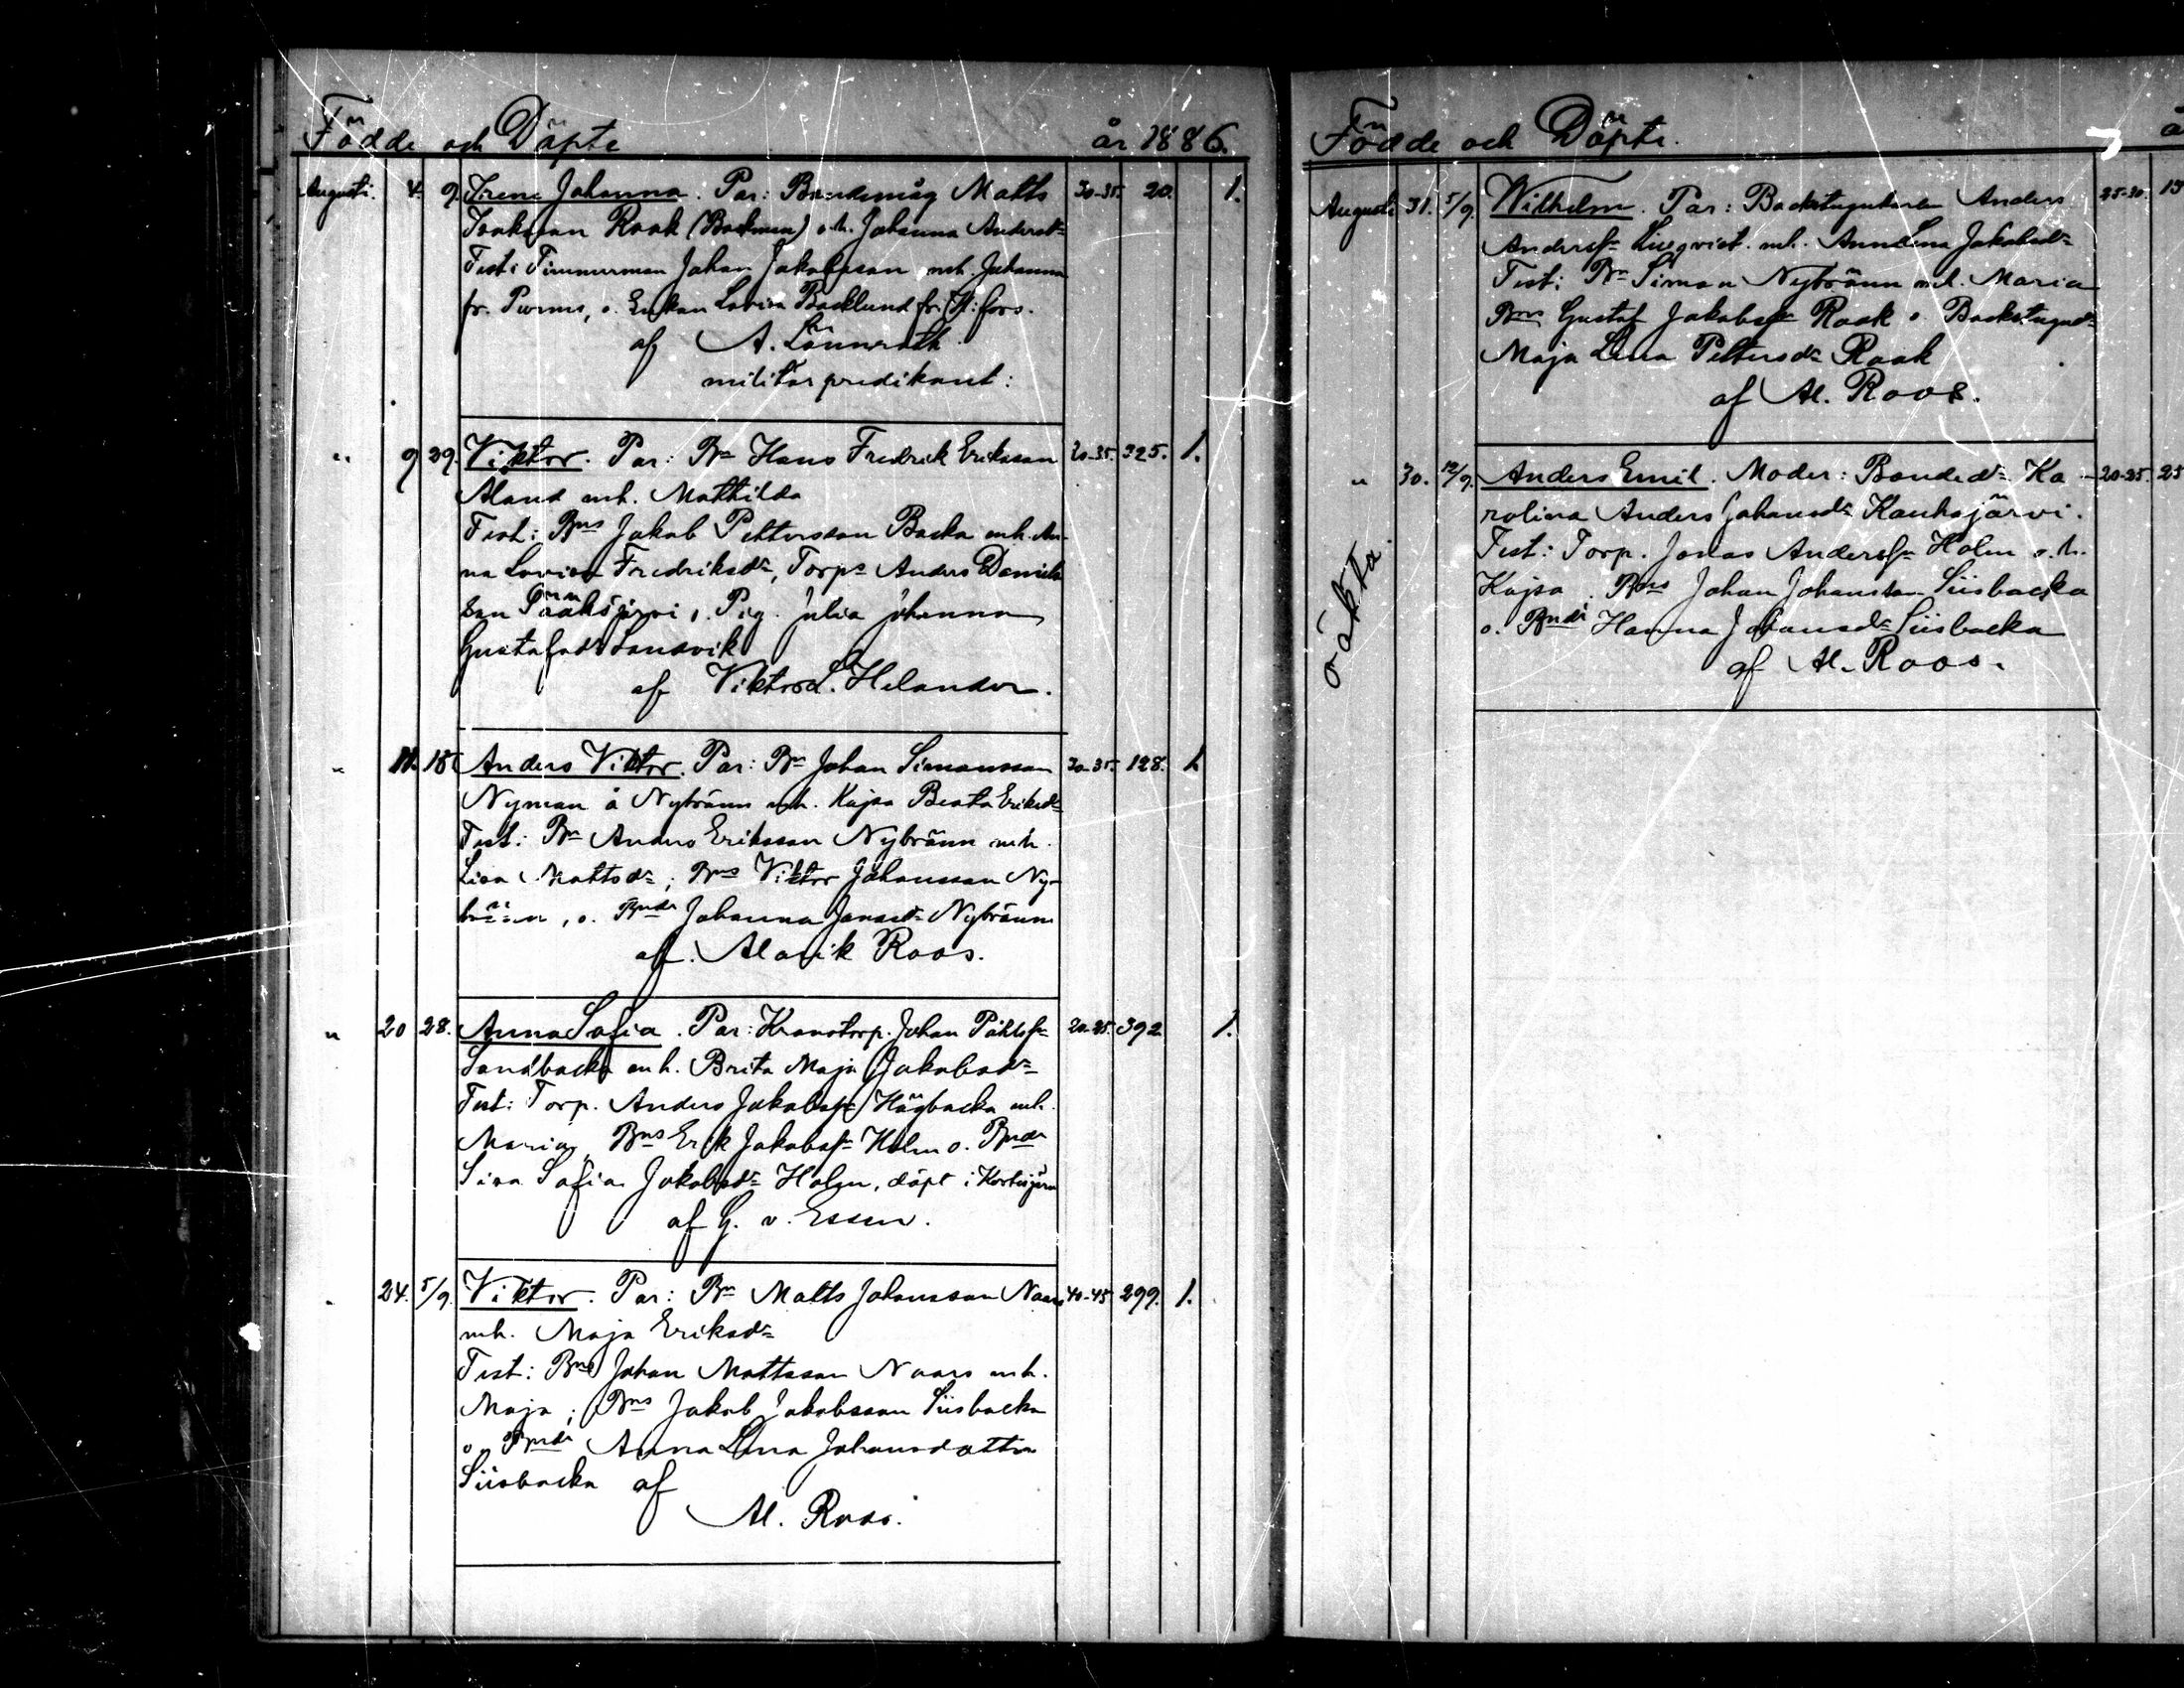 Födde och Döpte år 1886.
Augusti. 4. 9. Irene Johanna. Par: Bondemåg Matts 30-35. 20. 1.
Isaksson Raak (Backman) o. h. Johanna Andersdr
Test: Timmerman Johan Jakobsson mh. Johanna
fr. Purmo, o. Enkan Lovisa Backlund fr. H:fors.
af A. Lönnroth
militärpredikant:
" 9 29. Viktor. Par: Bn Hans Fredrik Eriksson 30-35. 325. 1.
Åland mh. Mathilda
Test: Bns Jakob Pettersson Backa mh. An-
na Lovisa Fredriksdr, Torps Anders Daniels
son Sääksjärvi, Pig. Julia Johanna
Gustafsdr Sandvik
af Viktor L. Helander.
" 11. 15 Anders Viktor. Par: Bn Johan Simonsson 30-35. 128. 1.
Nyman å Nybränn mh. Kajsa Beata Eriksdr
Test: Bn Anders Eriksson Nybränn mh.
Lisa Mattsdr; Bns Viktor Johansson Ny-
bränn, o. Bndr Johanna Jonasdr Nybränn
af. Alarik Roos.
" 20 28. Anna Sofia. Par: Kronotorp. Johan Påhlsn 20-25. 392 1.
Sandbacka mh. Brita Maja Jakobsdr
Test: Torp. Anders Jakobsn Högbacka mh.
Maria, Bns Erik Jakobsn Holm o. Bndr
Sofia Jakobsdr Holm, döpt i Kortesjärvi
af G. v. Essen.
" 24. 5/9. Viktor. Par: Bn Matts Johansson Naars 40-45 299. 1.
mh. Maja Eriksdr
Test: Bns Johan Mattsson Naars mh.
Maja; Bns Jakob Jakobsson Siisbacka
o. Bndr Anna Lena Johansdotter
Siisbacka af
Al. Roos.
Födde och Döpte.
Augusti 31. 5/9. Wilhelm. Par: Backstugukarlen Anders 25-30.
Andersn mh. Anna Lena Jakobsdr
Test: Bn Simon Nybränn mh. Maria
Bns Gustaf Jakobsn Raak o. Backstugud
Maja Lena Pettersdr Raak
af Al. Roos.
" 30. 12/9. Anders Emil. Moder: Bondedr Ka- 20-25. 25
rolina Anders Johansdr Kauhajärvi.
Test: Torp. Jonas Andersn Holm o. h.
Kajsa, Bns Johan Johansson Siisbacka
o. Bndr Hanna Johansdr Siisbacka
af Al. Roos.
oäkta.